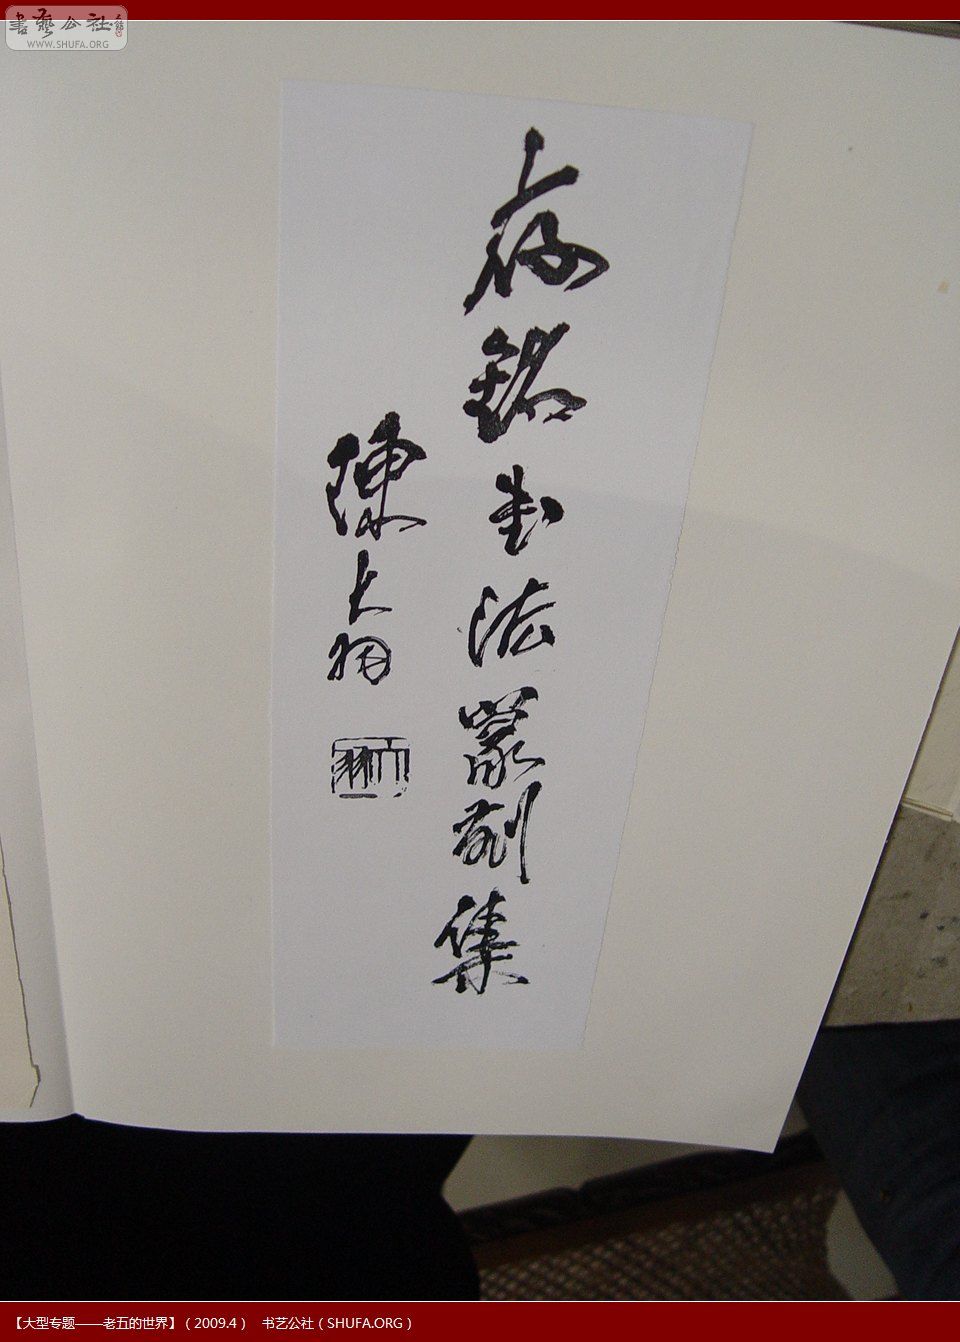 書藝公社
WWW.SHUFA.ORG
存銘书法篆刻集
陳大羽
大羽
【大型专题——老五的世界】（2009.4） 书艺公社（SHUFA.ORG）